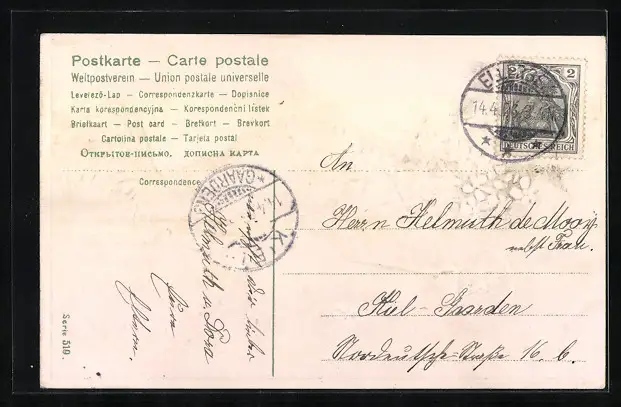 Postkarte — Carte postale
Weltpostverein — Union postale universelle
Levelező-Lap — Correspondenzkarte — Dopisnice
Karta korespondencyjna — Korespondenční lístek
Briefkaart — Post card — Brefkort — Brevkort
Cartolina postale — Tarjeta postal
ОТКРЫТОЕ-ПИСЬМО. ДОПИСНА КАРТА
Correspondence
2 2
DEUTSCHES REICH
14.4.
GAARDEN
An
Herrn Helmuth de Mooy
nebst Frau.
Kiel-Gaarden
Norddeutsche-Straße 16. b.
Helmuth u. Dora
Eure
Eltern.
Serie 519.